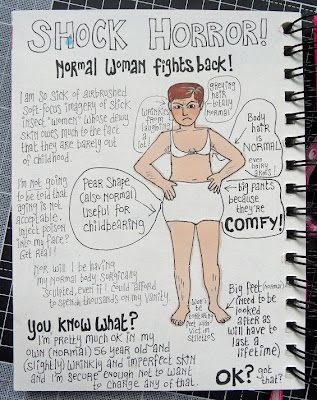 SHOCK HORROR!
NORMAL WOMAN FIGHTS BACK!
I am so sick of airbrushed
soft-focus imagery of stick
insect "women" whose dewy
skin owes much to the fact
that they are barely out
of childhood.
I'm not going
to be told that
aging is not
acceptable.
Inject poison
into my face?
Get real!
Nor will I be having
my normal body surgically
sculpted, even if I could afford
to spend thousands on my vanity.
YOU KNOW WHAT?
I'm pretty much OK in my
own (normal) 56 year old and
(slightly) wrinkly and imperfect skin
and I'm secure enough not to want
to change any of that.
wrinkles
from
laughing
a
lot
greying
hair
- totally
normal
Body
hair
is
NORMAL
even hairy
arms!
Pear Shape
(also normal)
Useful for
childbearing
big pants
because
they're
COMFY!
Won't
be
feet
in
stilettos
Big feet (normal)
(need to be
looked
after as
will have to
last a
lifetime)
OK? got
that?